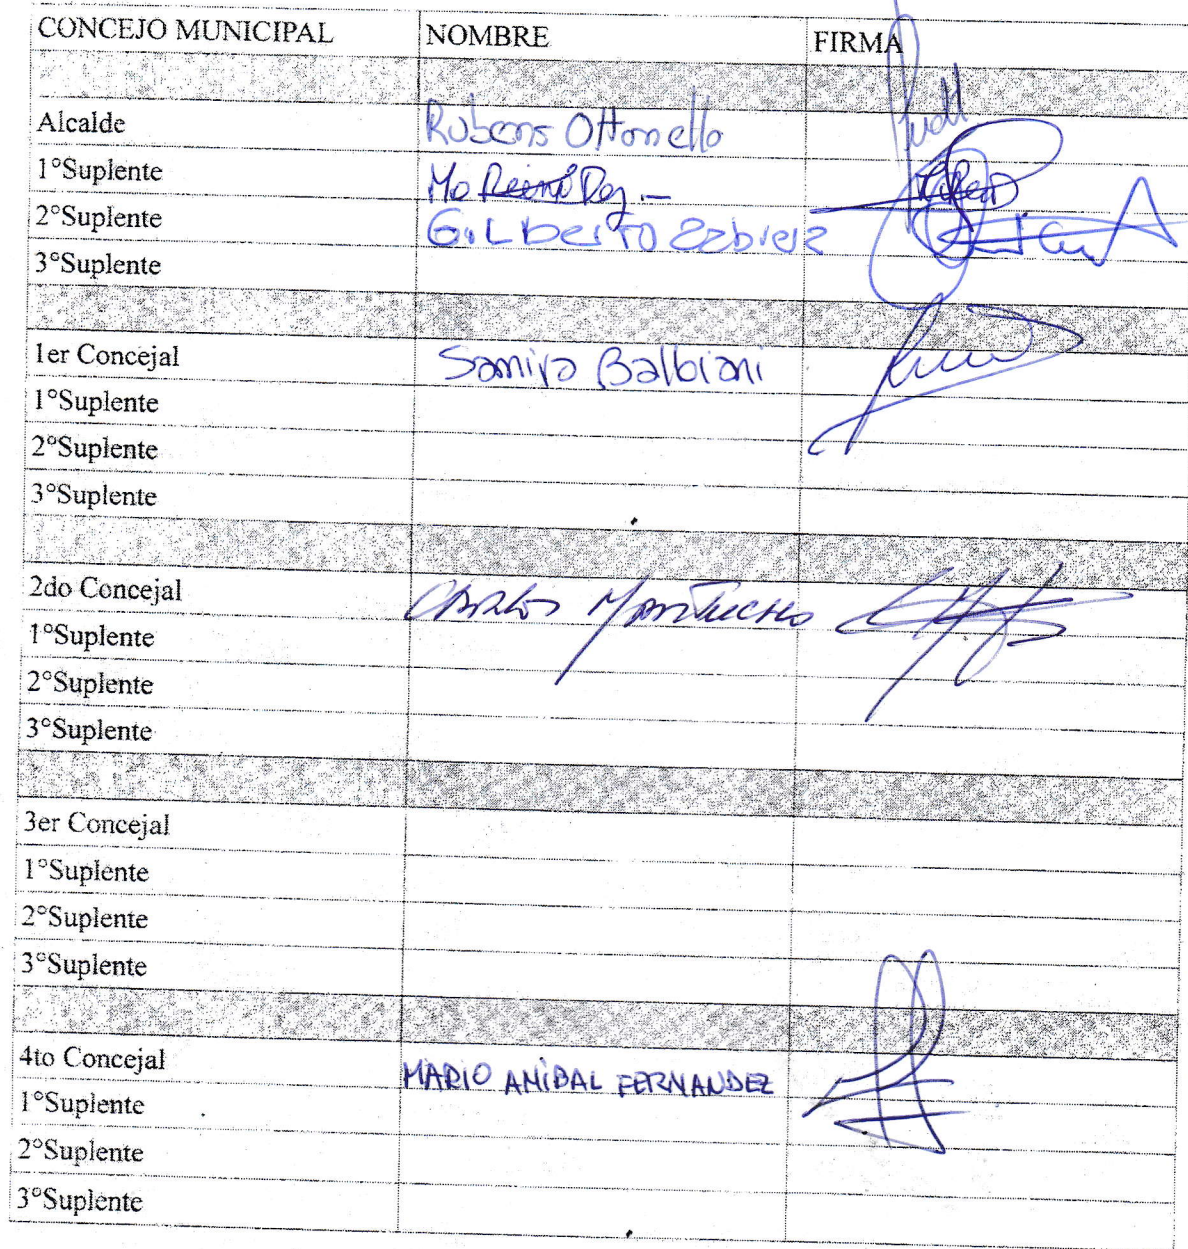 CONCEJO MUNICIPAL NOMBRE FIRMA
Alcalde Rubens Ottonello
1°Suplente
2°Suplente GiLberTO
3°Suplente
1er Concejal Samira Balbiani
1°Suplente
2°Suplente
3°Suplente
2do Concejal CARLOS
1°Suplente
2°Suplente
3°Suplente
3er Concejal
1°Suplente
2°Suplente
3°Suplente
4to Concejal MARIO ANIBAL FERNANDEZ
1°Suplente
2°Suplente
3°Suplente